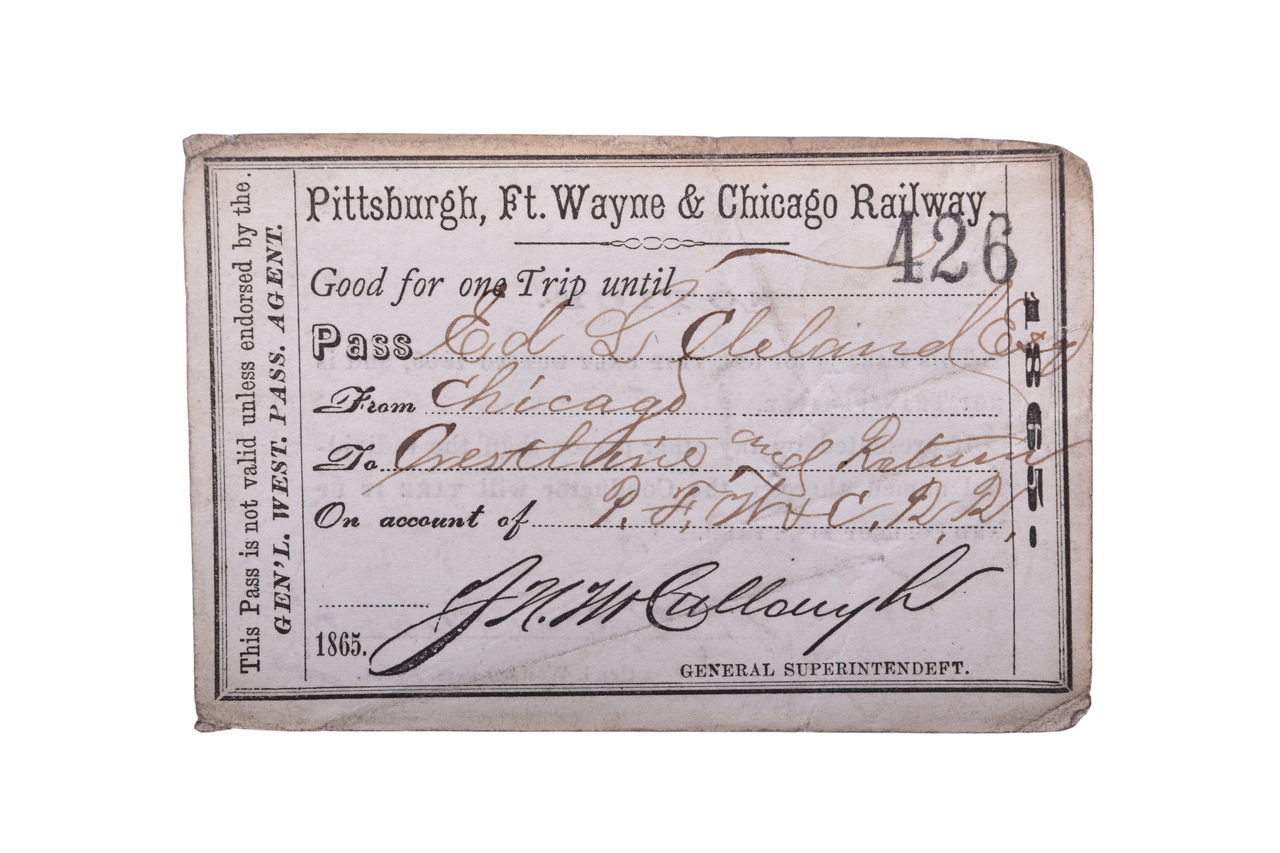 This Pass is not valid unless endorsed by the.
GEN'L. WEST. PASS. AGENT.
Pittsburgh, Ft. Wayne & Chicago Railway.
426
Good for one Trip until
Pass Ed L Cleland Esq
From Chicago
To Crestline and Return
On account of P. F. W & C. R. R.
J. N. McCullough
1865.
GENERAL SUPERINTENDEFT.
1865-